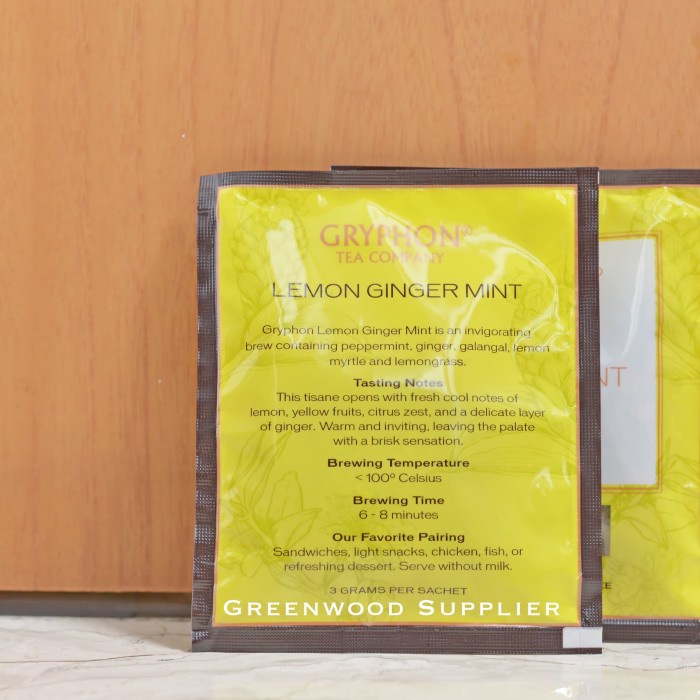 GRYPHON®
TEA COMPANY
LEMON GINGER MINT
Gryphon Lemon Ginger Mint is an invigorating
brew containing peppermint, ginger, galangal, lemon
myrtle and lemongrass.
Tasting Notes
This tisane opens with fresh cool notes of
lemon, yellow fruits, citrus zest, and a delicate layer
of ginger. Warm and inviting, leaving the palate
with a brisk sensation.
Brewing Temperature
< 100° Celsius
Brewing Time
6 - 8 minutes
Our Favorite Pairing
Sandwiches, light snacks, chicken, fish, or
refreshing dessert. Serve without milk.
3 GRAMS PER SACHET
GREENWOOD SUPPLIER
NT